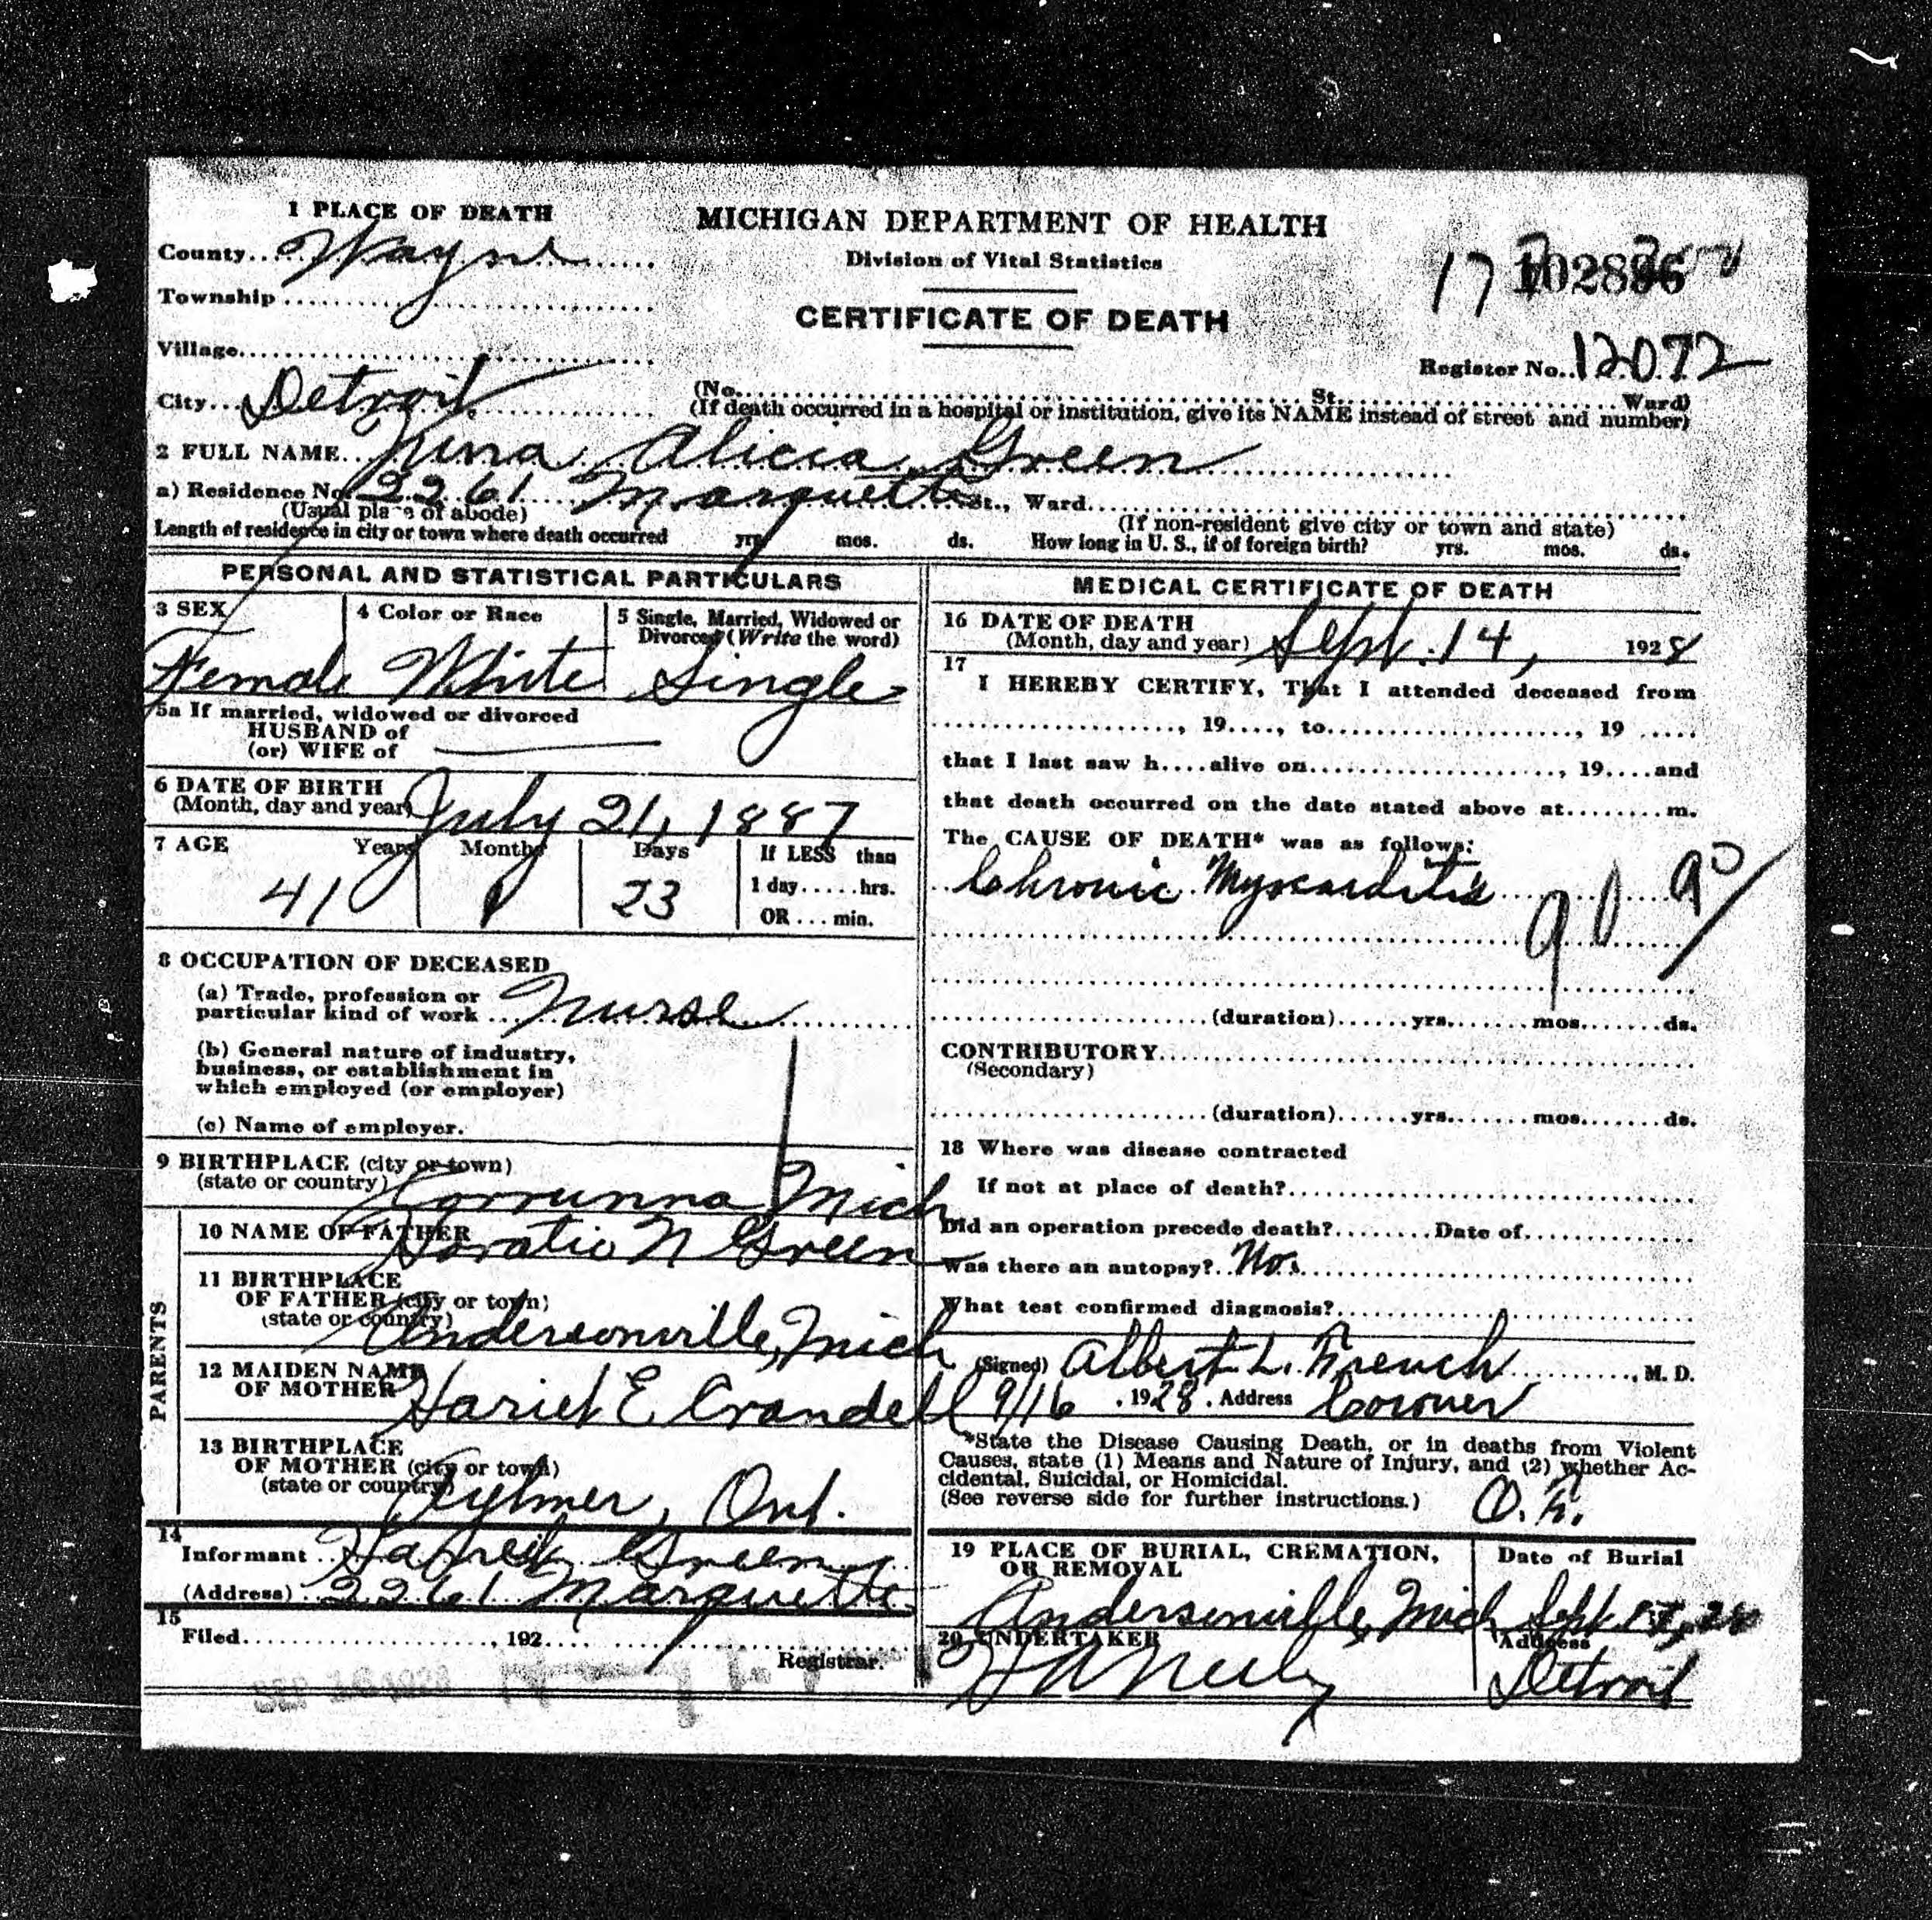 1 PLACE OF DEATH
MICHIGAN DEPARTMENT OF HEALTH
Division of Vital Statistics
CERTIFICATE OF DEATH
County Wayne
Township
Village
City Detroit
17
Register No. 12072
(No. St. Ward)
(If death occurred in a hospital or institution, give its NAME instead of street and number)
2 FULL NAME Alicia Green
a) Residence No. 2261 Marquette St., Ward
(Usual place of abode) (If non-resident give city or town and state)
Length of residence in city or town where death occurred yrs. mos. ds. How long in U. S., if of foreign birth? yrs. mos. ds.
PERSONAL AND STATISTICAL PARTICULARS
3 SEX
4 Color or Race
5 Single, Married, Widowed or
Divorced (Write the word)
Female White Single
5a If married, widowed or divorced
HUSBAND of
(or) WIFE of
6 DATE OF BIRTH
(Month, day and year) July 21, 1887
7 AGE Years Months Days If LESS than
41 1 23 1 day.....hrs.
OR ... min.
8 OCCUPATION OF DECEASED
(a) Trade, profession or
particular kind of work Nurse
(b) General nature of industry,
business, or establishment in
which employed (or employer)
(c) Name of employer.
9 BIRTHPLACE (city or town)
(state or country) Corrunna Mich
PARENTS
10 NAME OF FATHER Horatio N Green
11 BIRTHPLACE
OF FATHER (city or town)
(state or country) Andersonville, Mich
12 MAIDEN NAME
OF MOTHER Hariet E Crandell
13 BIRTHPLACE
OF MOTHER (city or town)
(state or country) Aylmer, Ont.
14
Informant Green
(Address) 2261 Marquette
15
Filed , 192
Registrar.
MEDICAL CERTIFICATE OF DEATH
16 DATE OF DEATH
(Month, day and year) Sept. 14, 1928
17
I HEREBY CERTIFY, That I attended deceased from
, 19...., to , 19
that I last saw h....alive on , 19....and
that death occurred on the date stated above at m.
The CAUSE OF DEATH* was as follows:
Chronic Myocarditis 90 90
(duration) yrs. mos. ds.
CONTRIBUTORY
(Secondary)
(duration) yrs. mos. ds.
18 Where was disease contracted
If not at place of death?
Did an operation precede death? Date of
Was there an autopsy? No.
What test confirmed diagnosis?
(Signed) Albert L. French , M. D.
9/16 , 1928. Address Coroner
*State the Disease Causing Death, or in deaths from Violent
Causes, state (1) Means and Nature of Injury, and (2) whether Ac-
cidental, Suicidal, or Homicidal.
(See reverse side for further instructions.) O.K.
19 PLACE OF BURIAL, CREMATION,
OR REMOVAL
Date of Burial
Andersonville, Mich Sept.
20 UNDERTAKER
Address
Detroit